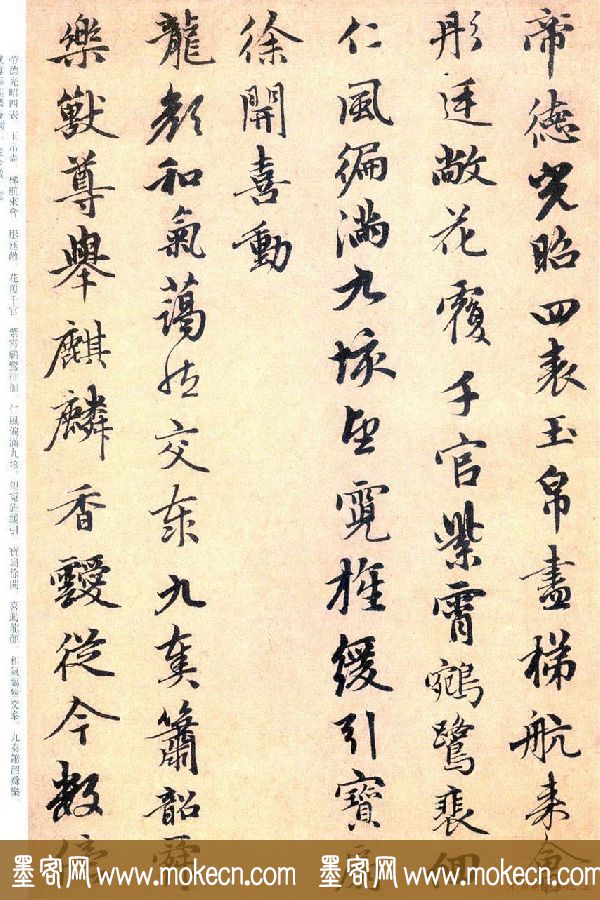 帝德光昭四表玉帛盡梯航来會
彤廷敞花覆千官紫霄鵷鷺裴佪
仁風徧滿九垓望霓旌緩引寶扇
徐開喜動
龍顏和氣藹然交泰九奏簫韶舜
樂獸尊舉麒麟香靉從今數億
帝德光昭四表 玉帛盡 梯航來會 彤廷敞 花覆千官 紫霄鵷鷺徘徊 仁風徧滿九垓 望霓旌緩引 寶扇徐開 喜動龍顏 和氣藹然交泰 九奏簫韶舜樂
墨客网 www.mokecn.com 墨客网 www.mokecn.com